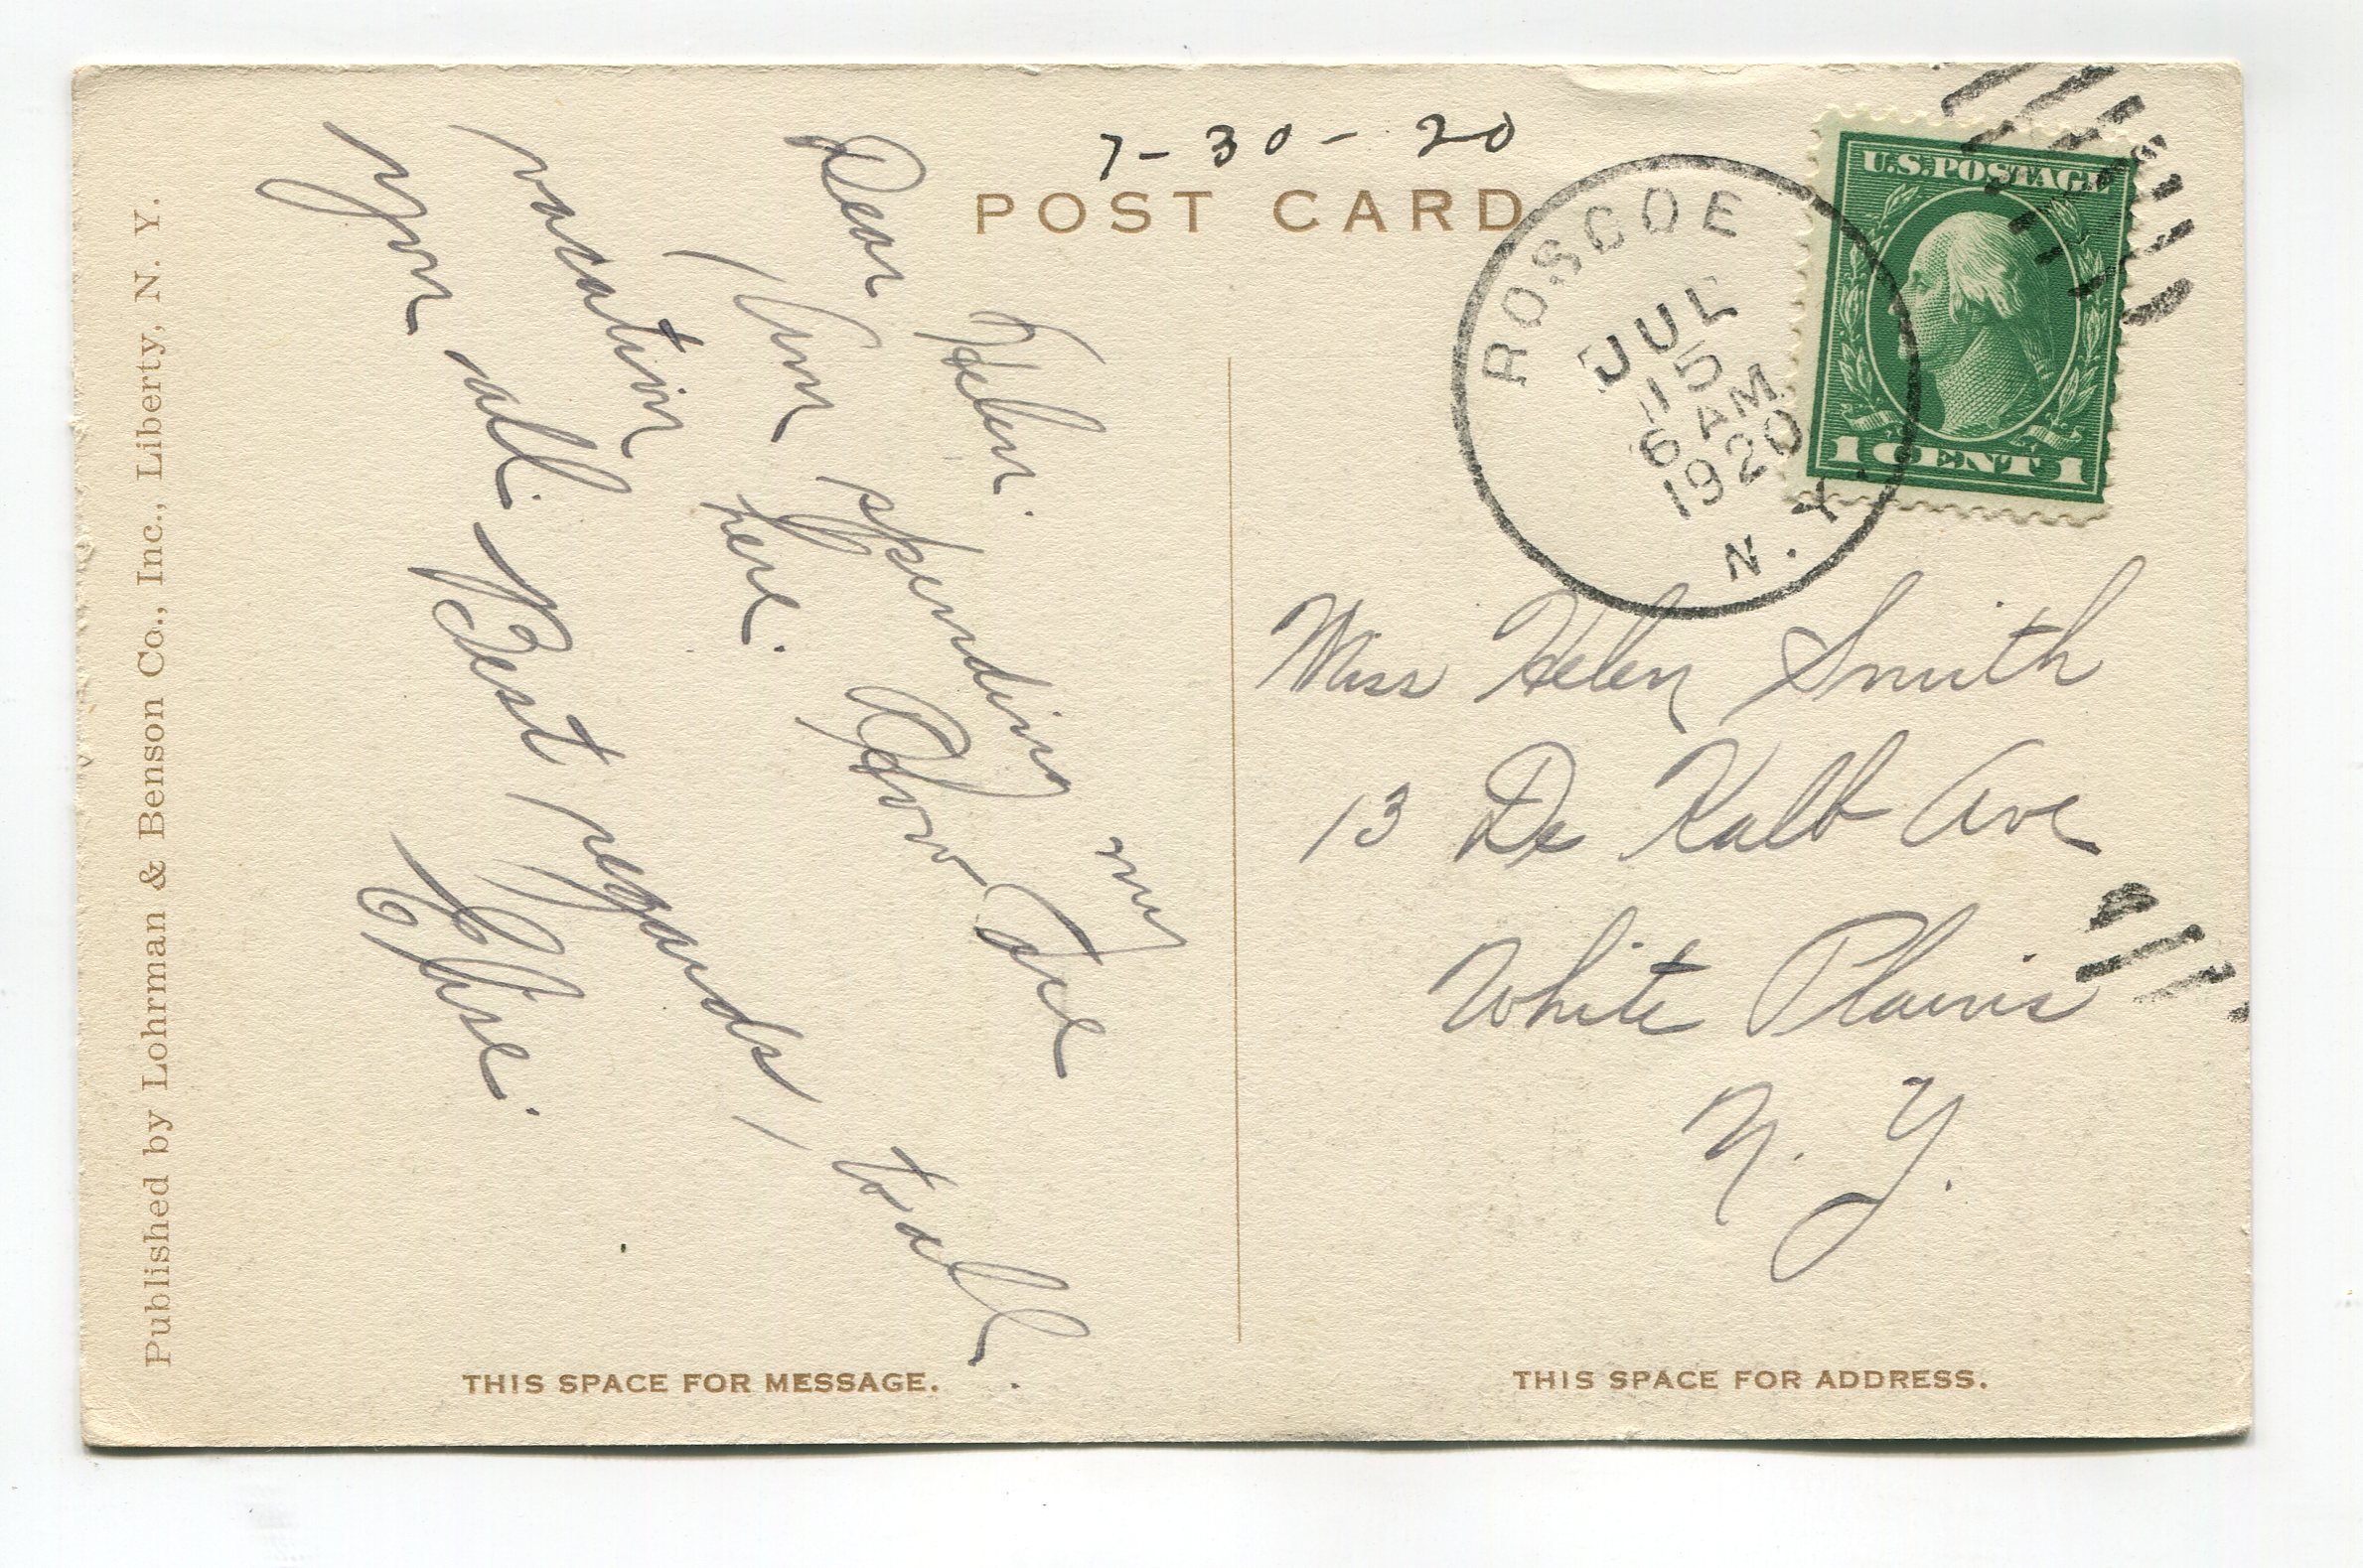 7-30-20
POST CARD
ROSCOE
JUL
15
6 AM
1920
N.Y.
U.S. POSTAGE
1 CENT 1
Dear Helen.
Am spending my
vacation here. How are
you all. Best regards to all.
Elsie.
Miss Helen Smith
13 De Kalb Ave
White Plains
N. Y.
THIS SPACE FOR MESSAGE.
THIS SPACE FOR ADDRESS.
Published by Lohrman & Benson Co., Inc., Liberty, N. Y.